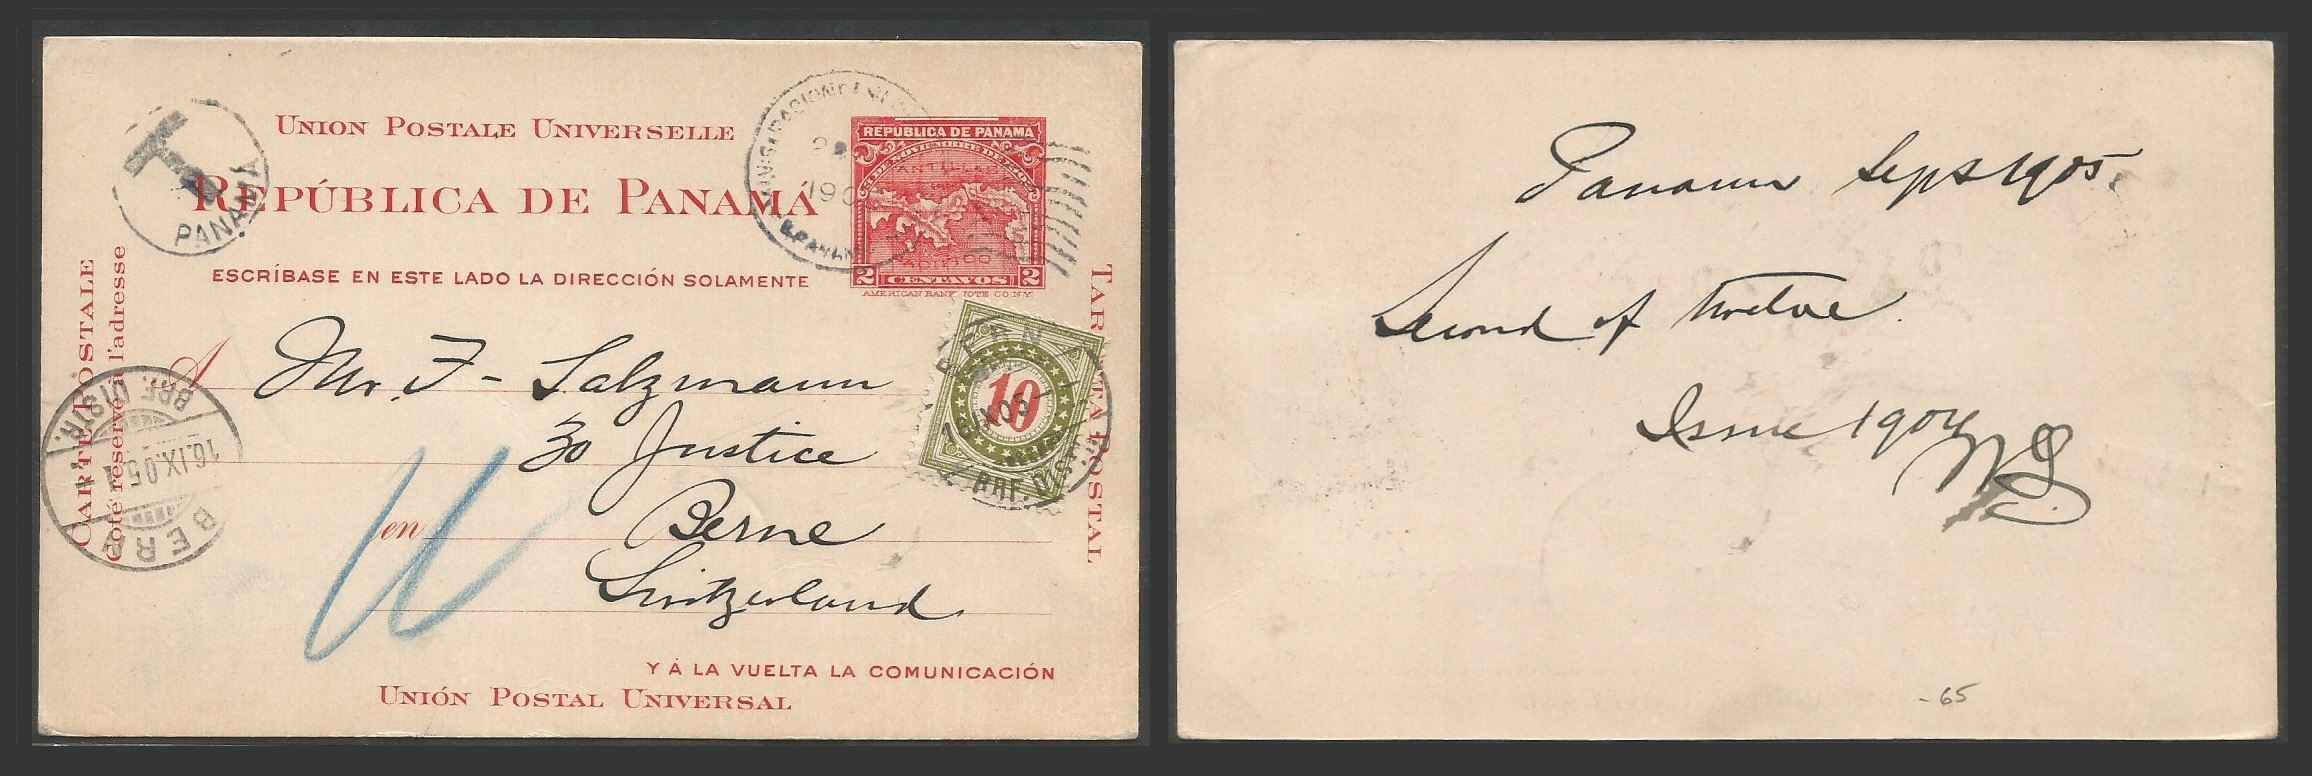 UNION POSTALE UNIVERSELLE
REPÚBLICA DE PANAMÁ
ESCRÍBASE EN ESTE LADO LA DIRECCIÓN SOLAMENTE
T
PANAMA
19
REPÚBLICA DE PANAMÁ
PACIFICO
2 CENTAVOS 2
AMERICAN BANK NOTE CO. N.Y.
CARTE POSTALE
Côté réservé à l'adresse
TARJETA POSTAL
A Mr. F- Salzmann
30 Justice
en Berne
Switzerland
10
BRF. DISTR.
BERN
BRF. DISTR.
16.IX.05.
BERN
Y Á LA VUELTA LA COMUNICACIÓN
UNIÓN POSTAL UNIVERSAL
Panama Sep 5 1905
Second of twelve
Issue 1904
-65